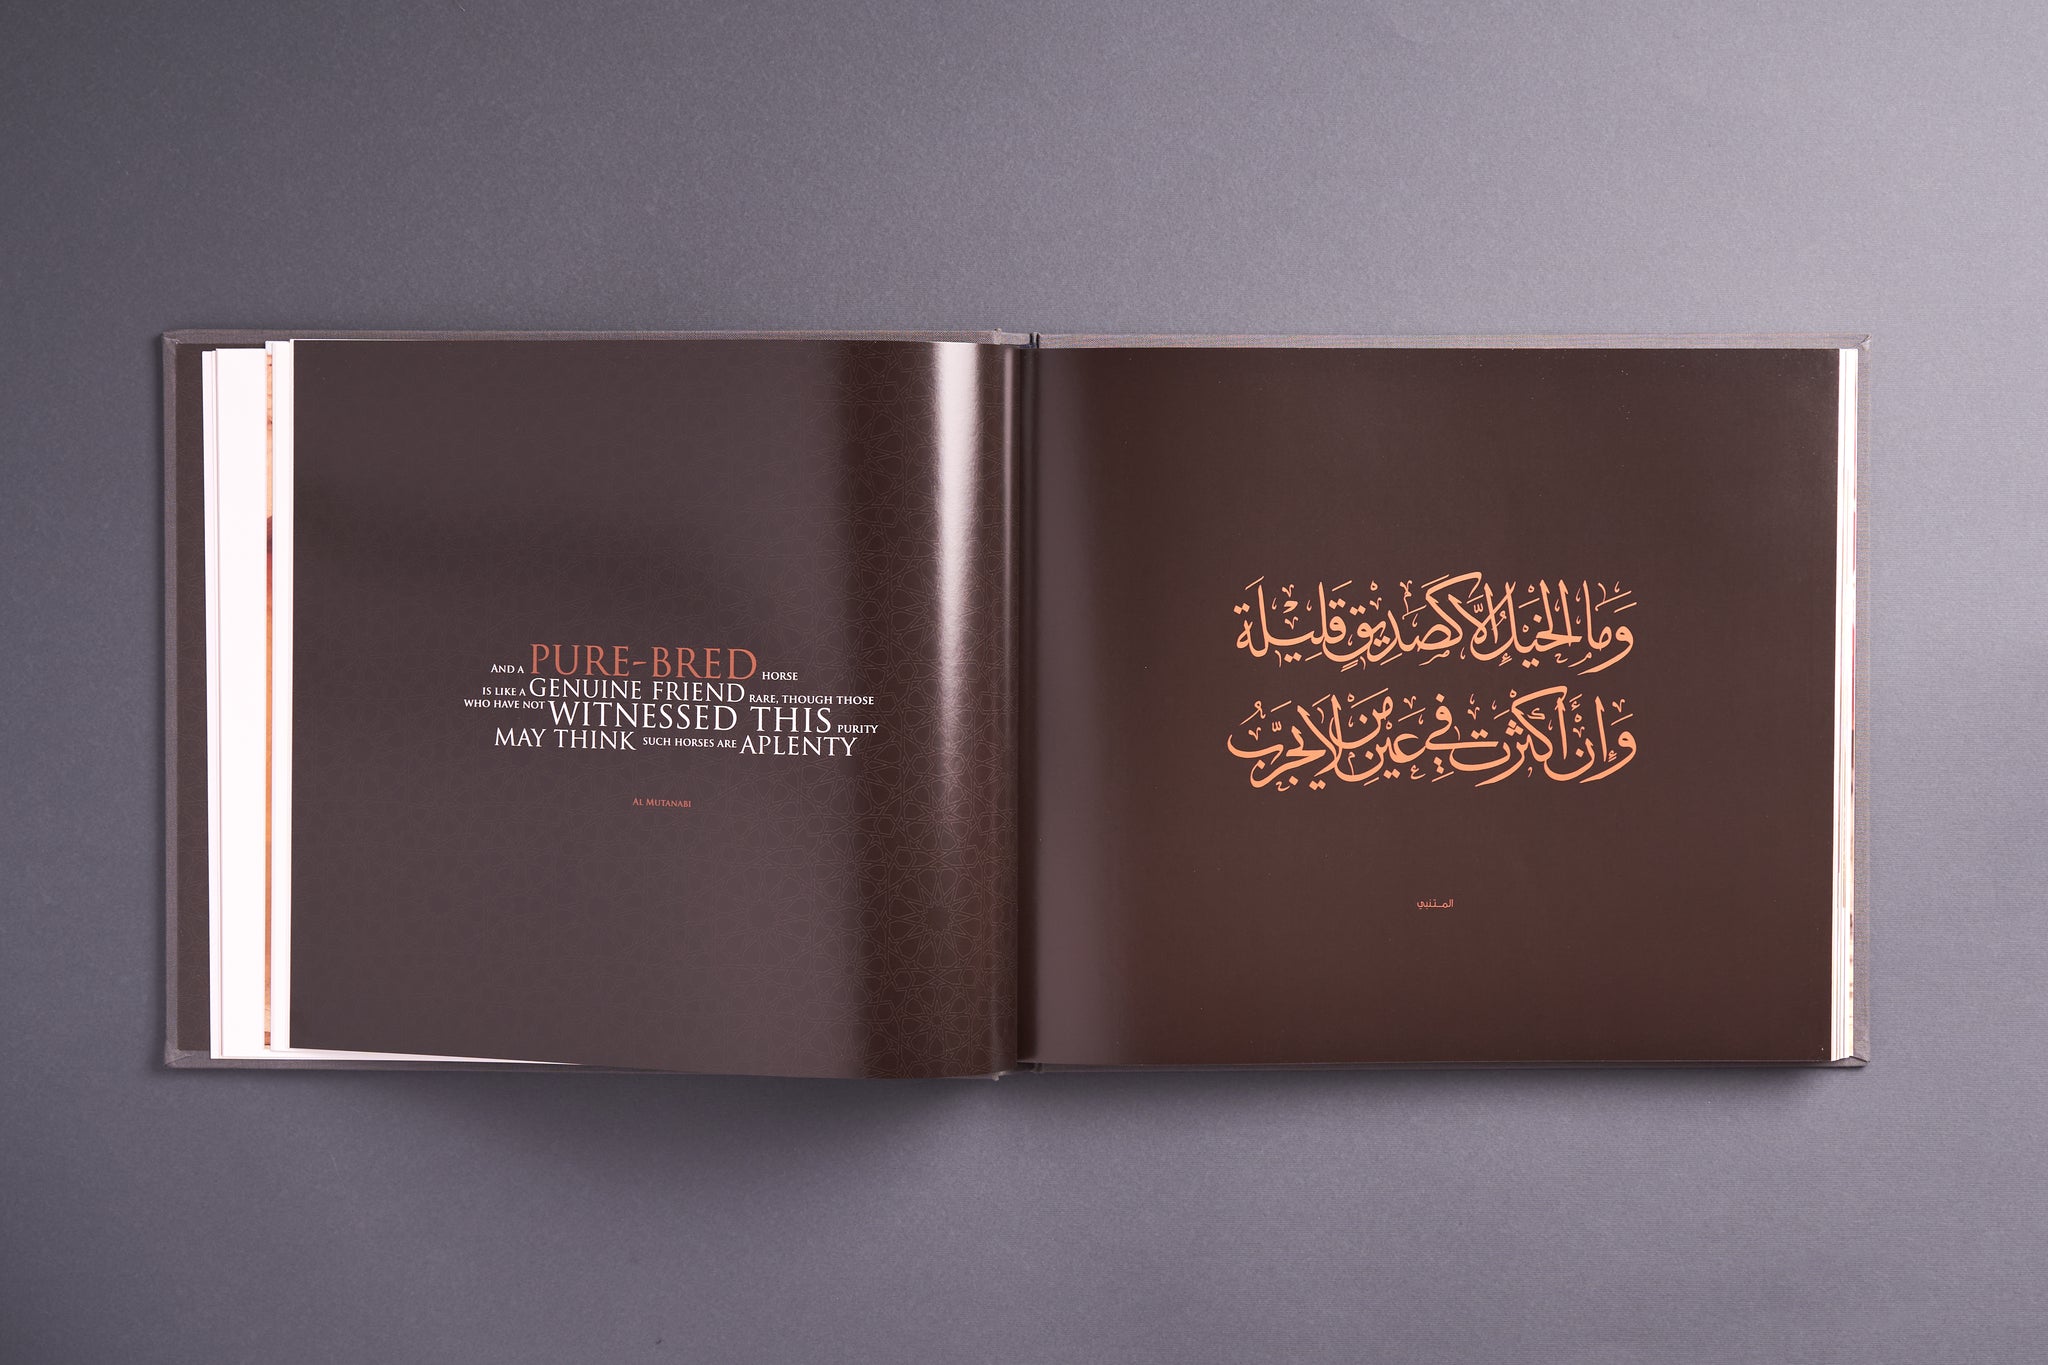 AND A PURE-BRED HORSE
IS LIKE A GENUINE FRIEND RARE, THOUGH THOSE
WHO HAVE NOT WITNESSED THIS PURITY
MAY THINK SUCH HORSES ARE APLENTY
AL MUTANABI
وَمَا الخَيْلُ إِلَّا كَصَدِيقٍ قَلِيلَة
وَإِنْ أَكْثَرَتْ فِي عَيْنِ مَن لَا يُجَرِّبُ
المتنبي